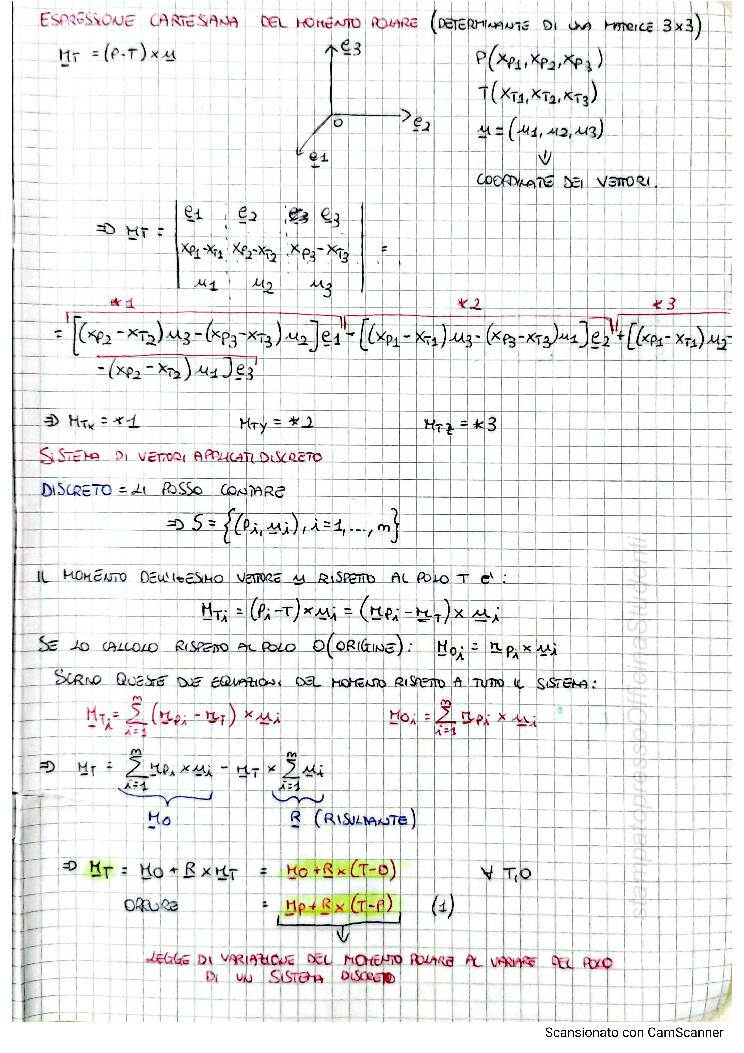 ESPRESSIONE CARTESIANA DEL MOMENTO POLARE (DETERMINANTE DI UNA MATRICE 3x3)
M_T = (P-T) × u
e3
O
e2
e1
P(xP1, xP2, xP3)
T(xT1, xT2, xT3)
u = (u1, u2, u3)
⇓
COORDINATE DEI VETTORI.
⇒ M_T = | e1 e2 e3 |
| xP1-xT1 xP2-xT2 xP3-xT3 | =
| u1 u2 u3 |
*1 *2 *3
= [(xP2-xT2)u3-(xP3-xT3)u2]e1-[(xP1-xT1)u3-(xP3-xT3)u1]e2+[(xP1-xT1)u2-
-(xP2-xT2)u1]e3
⇒ M_Tx = *1 M_Ty = *2 M_Tz = *3
SISTEMA DI VETTORI APPLICATI DISCRETO
DISCRETO = LI POSSO CONTARE
⇒ S = {(Pi, ui), i=1,...,m}
IL MOMENTO DELL'IESIMO VETTORE u RISPETTO AL POLO T E':
M_Ti = (Pi-T) × ui = (rPi - rT) × ui
SE LO CALCOLO RISPETTO AL POLO O (ORIGINE): M_Oi = rPi × ui
SCRIVO QUESTE DUE EQUAZIONI DEL MOMENTO RISPETTO A TUTTO IL SISTEMA:
M_Ti = Σ_{i=1}^{m} (rPi - rT) × ui M_Oi = Σ_{i=1}^{m} rPi × ui
⇒ M_T = Σ_{i=1}^{m} rPi × ui - rT × Σ_{i=1}^{m} ui
M_O R (RISULTANTE)
⇒ M_T = M_O + R × rT = M_O + R × (T-O) ∀ T,O
OPPURE = M_P + R × (T-P) (1)
LEGGE DI VARIAZIONE DEL MOMENTO POLARE AL VARIARE DEL POLO
DI UN SISTEMA DISCRETO
stampatopressoOfficinaStudenti
Scansionato con CamScanner